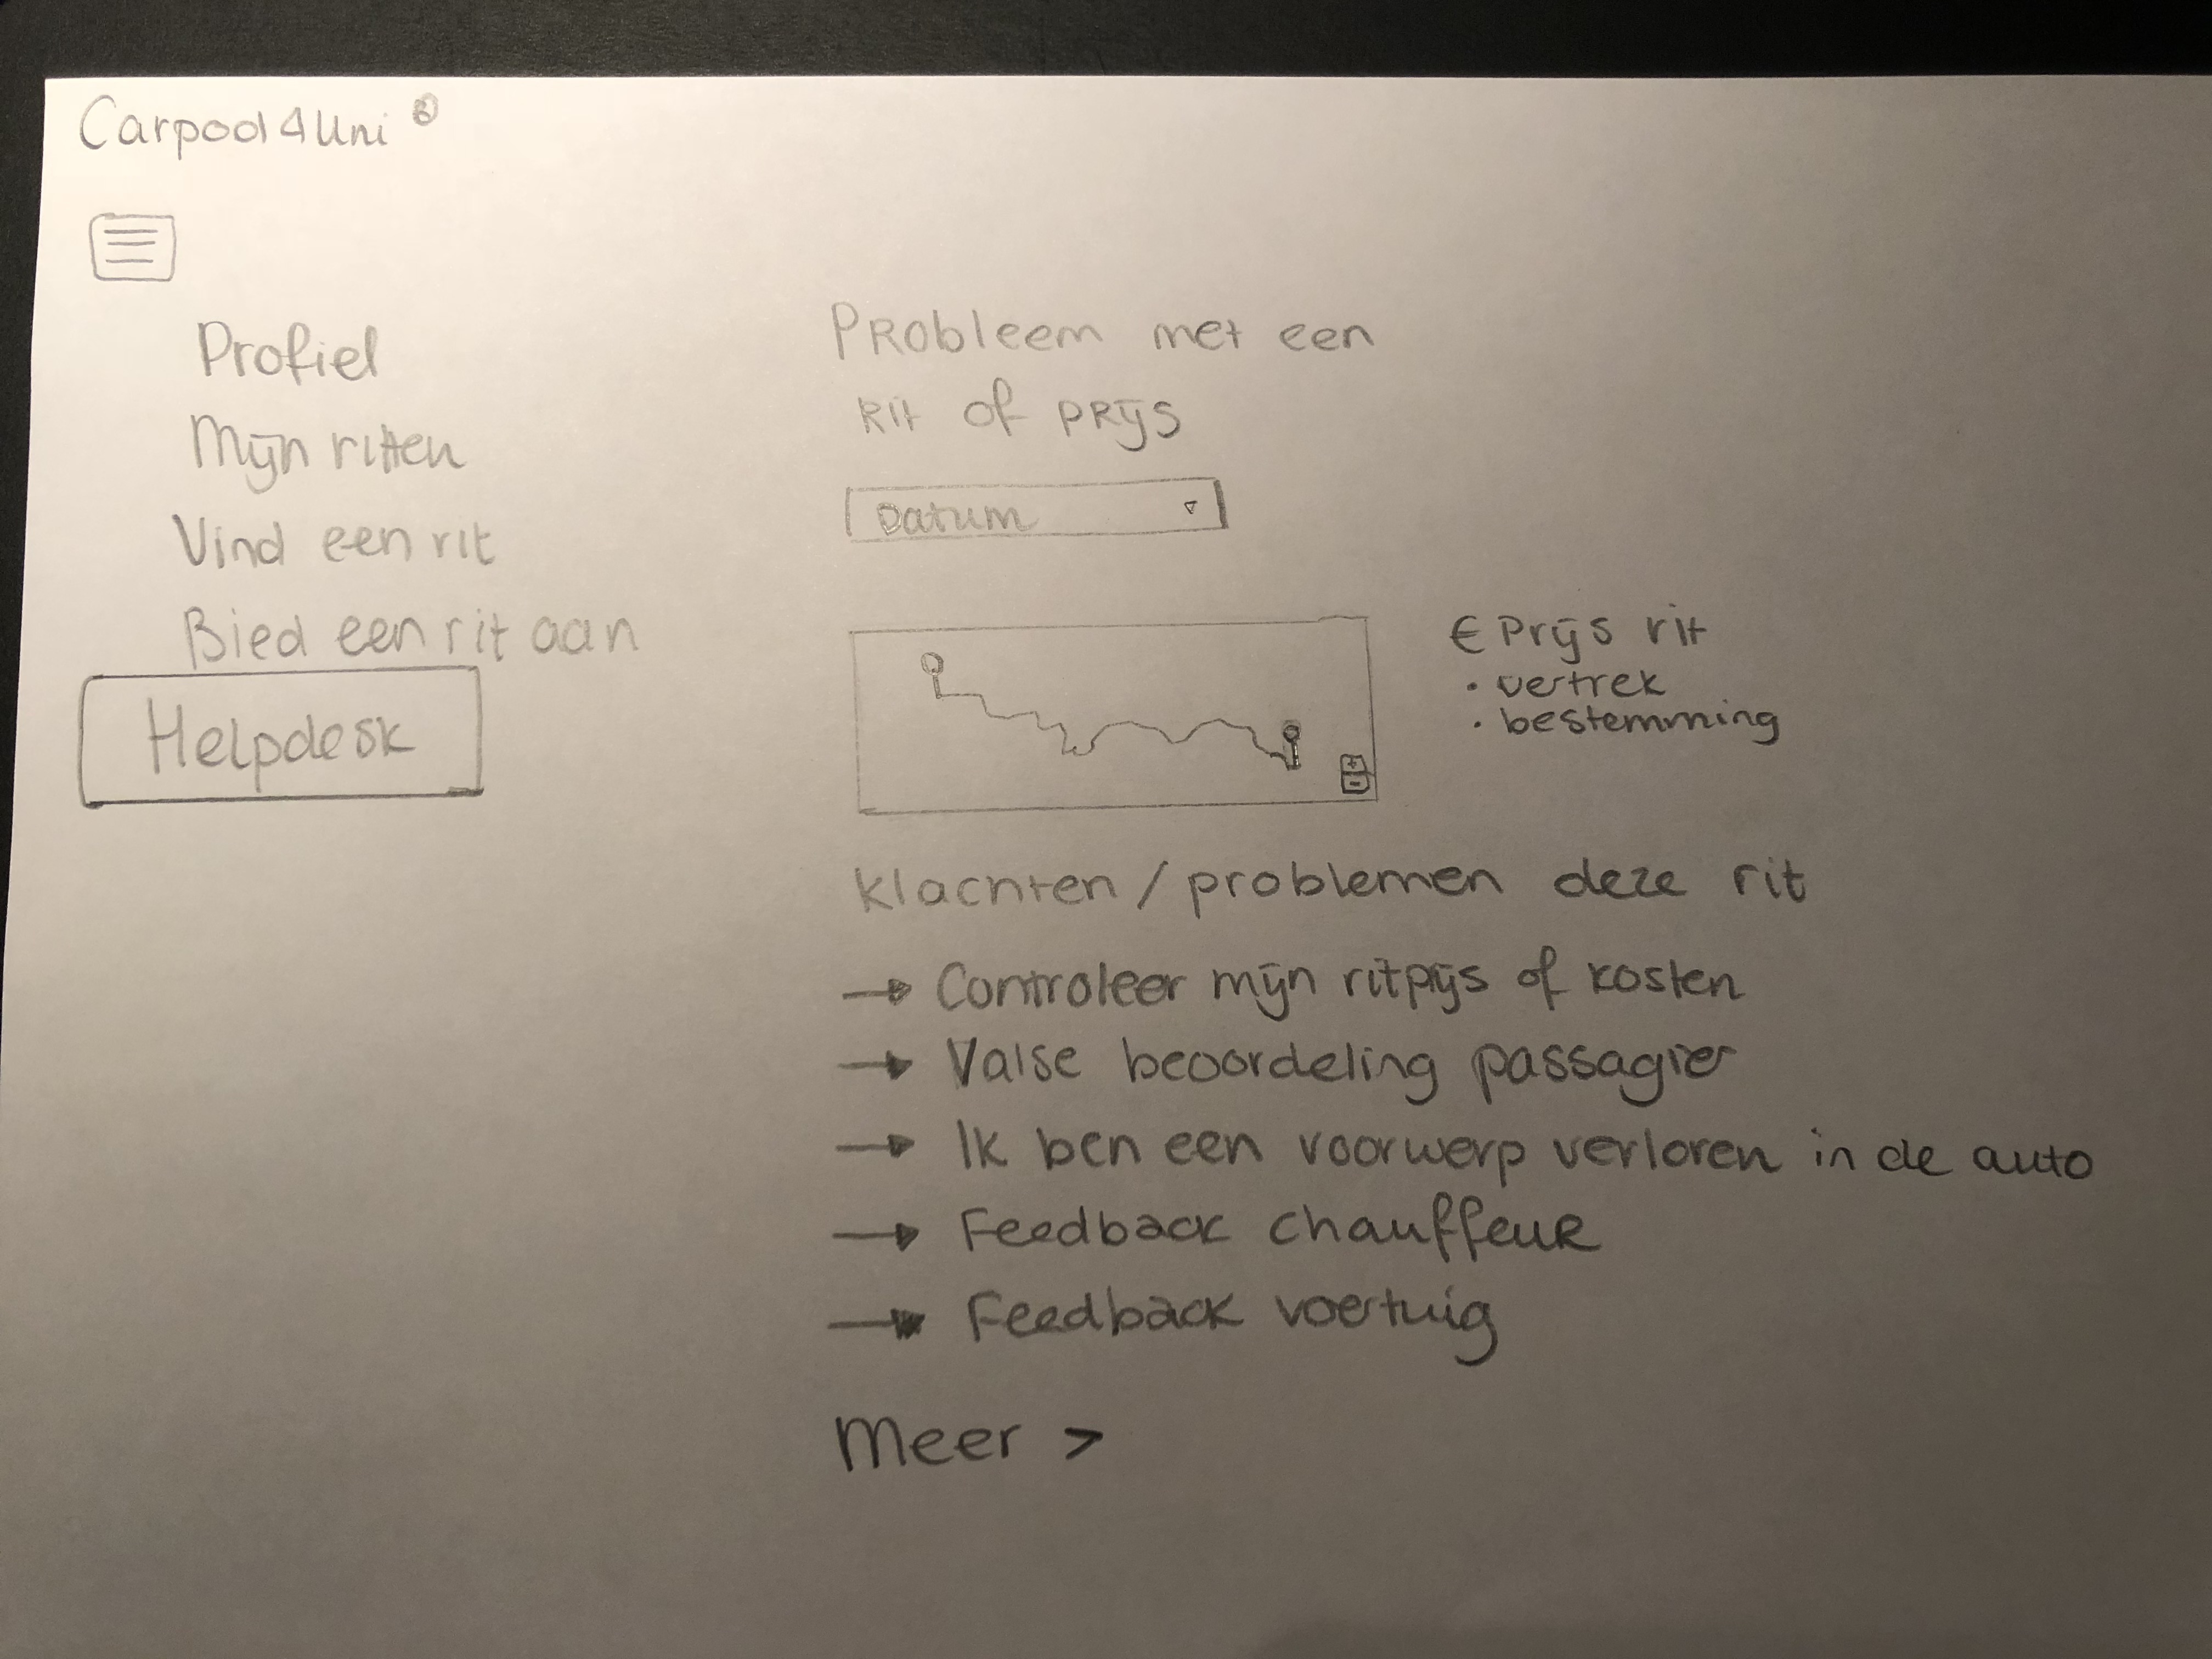 Carpool4Uni
Profiel
Mijn ritten
Vind een rit
Bied een rit aan
Helpdesk
Probleem met een
rit of prijs
Datum
€ Prijs rit
• vertrek
• bestemming
klachten / problemen deze rit
→ Controleer mijn ritpijs of kosten
→ Valse beoordeling passagier
→ Ik ben een voorwerp verloren in de auto
→ Feedback chauffeur
→ Feedback voertuig
Meer >